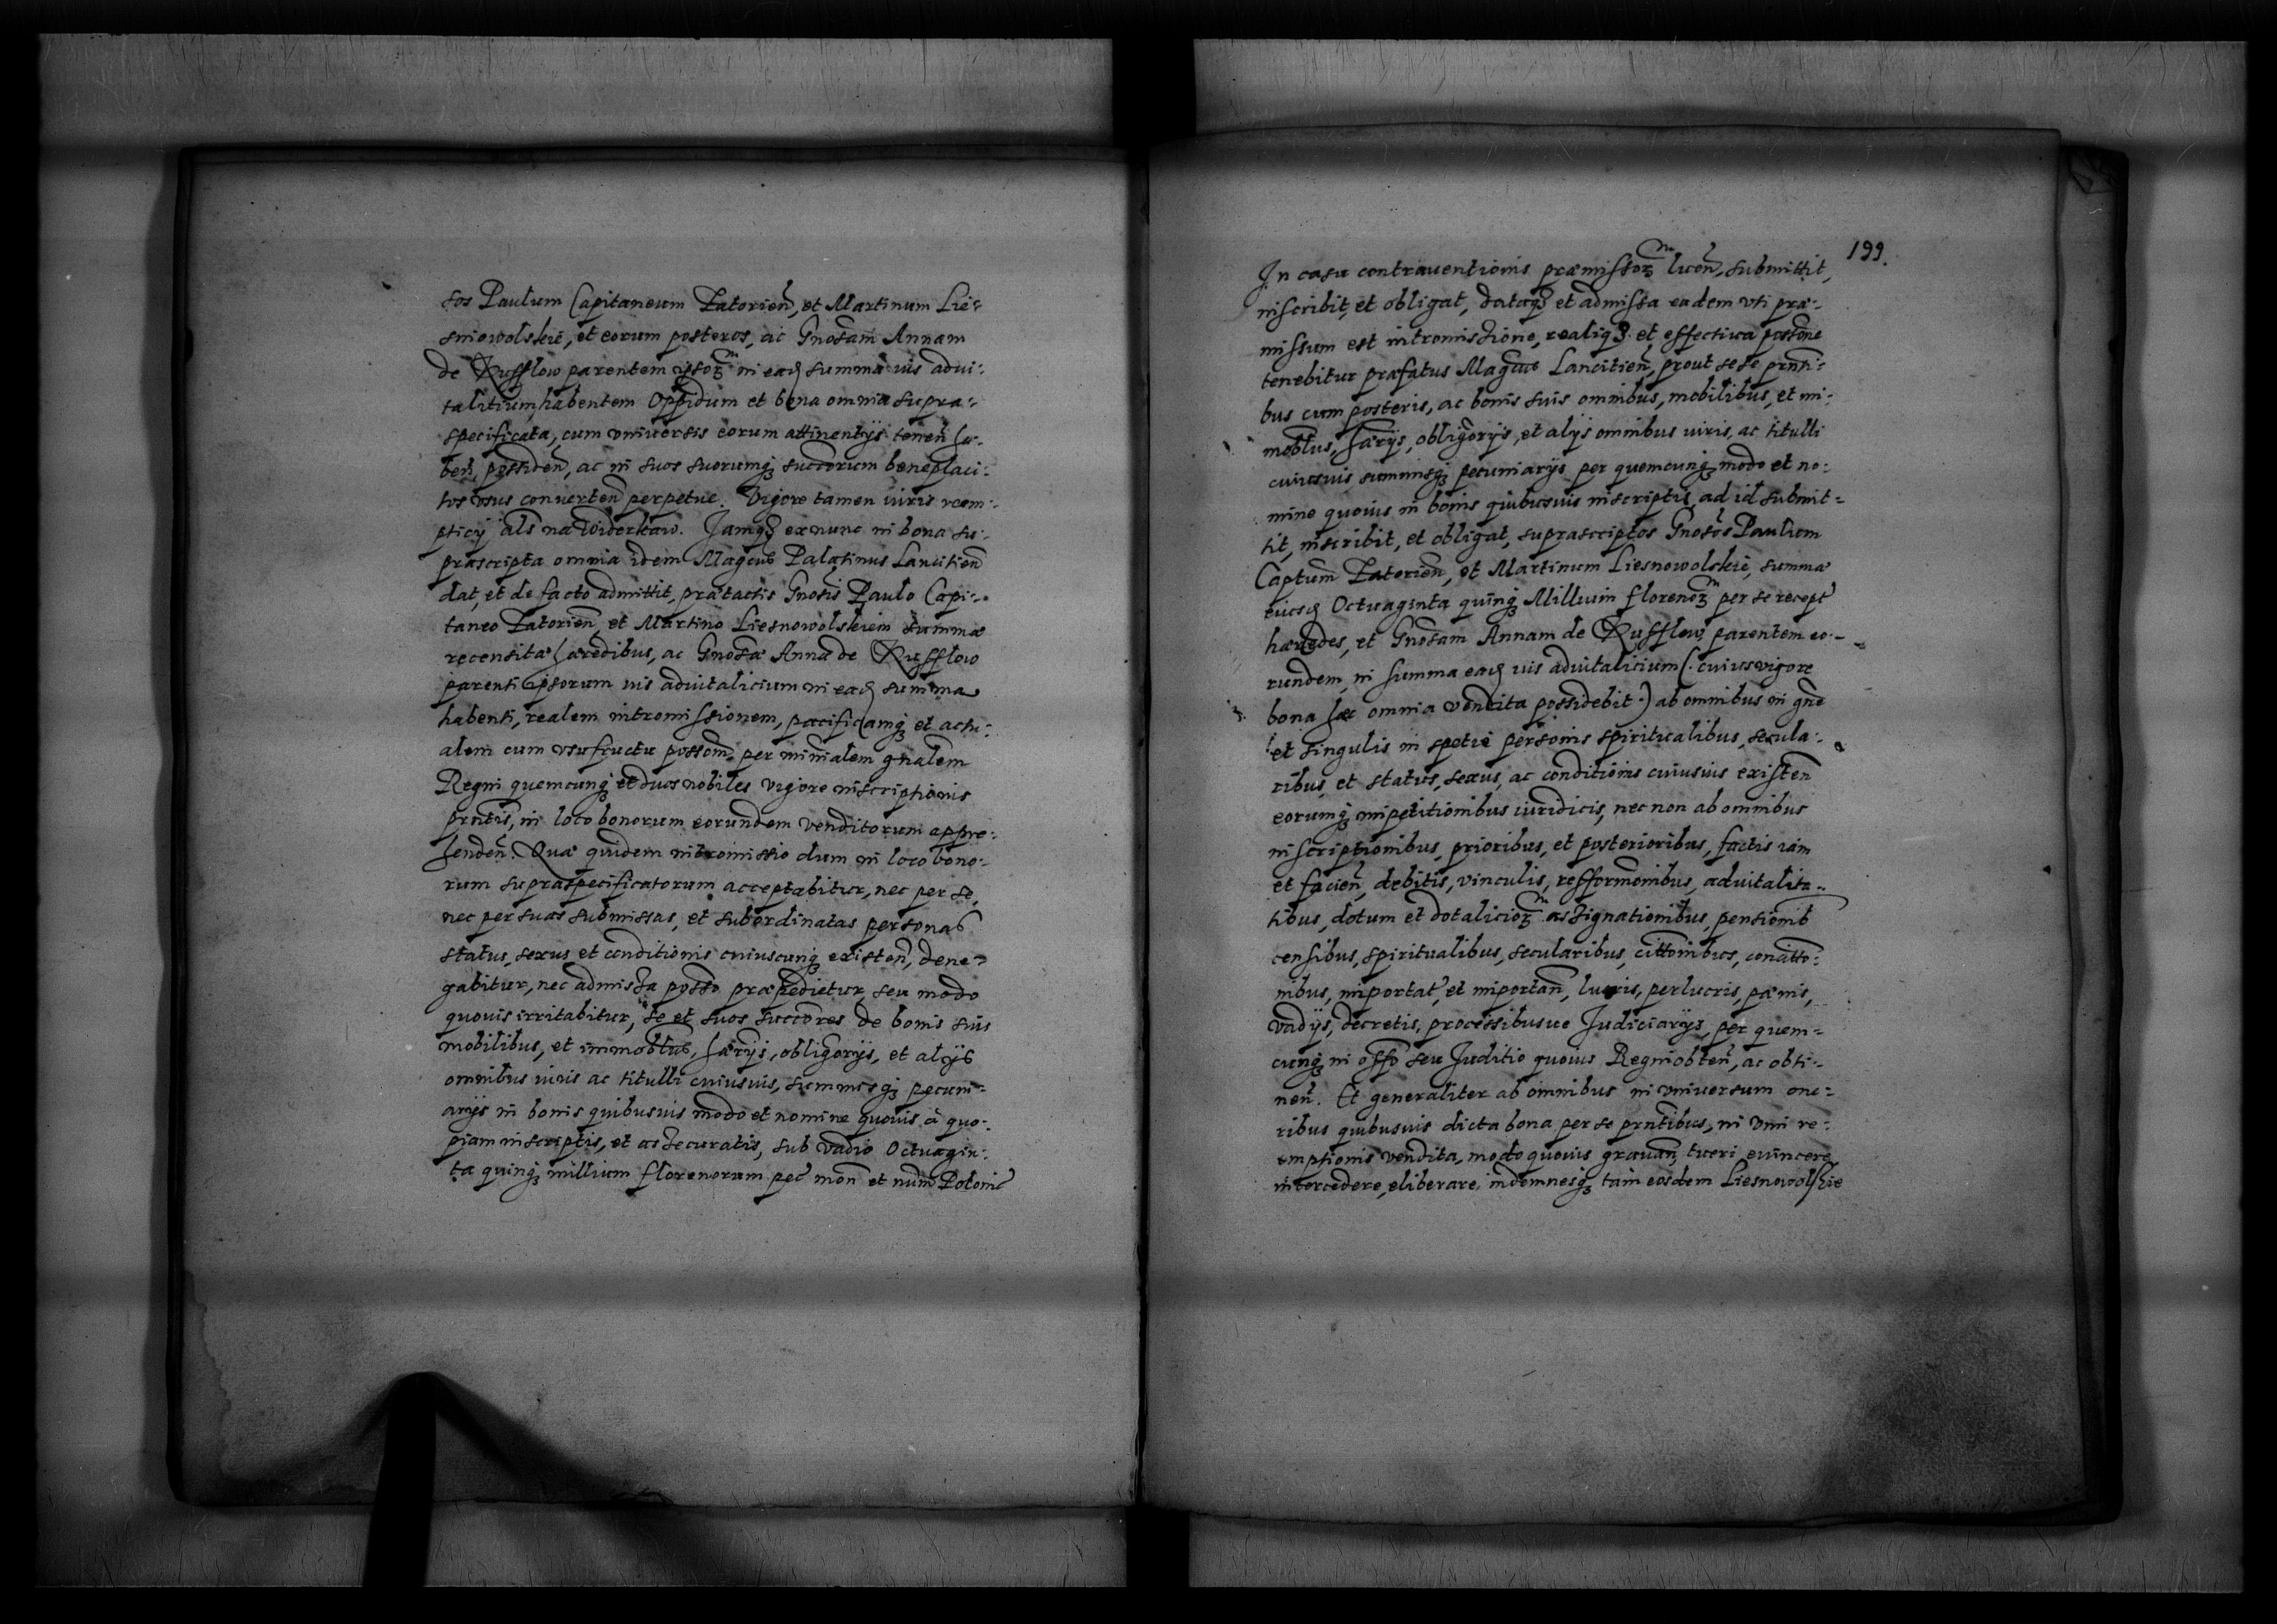 sos Paulum Capitaneum Latorien̄, et Martinum Lie-
sniowolskie, et eorum posteros, ac Gnosam Annam
de Russlow parentem ipsorꝫ in eadꝫ summa ius advi-
talitium habentem Oppidum et bona omnia supra-
specificata, cum universis eorum attinentijs tenen̄ ha-
ben̄, possiden̄, ac in suos suorumqꝫ succōrum beneplaci-
tos usus converten̄ perpetue. Vigore tamen iuris reem-
pticij als na Widerkaw. Jamqꝫ ex nunc in bona su-
prascripta omnia idem Magcus Palatinus Lancitien̄
dat, et de facto admittit, prætactis Gnosis Paulo Capi-
taneo Latorien̄, et Martino Liesnowolskiem summæ
recensitæ hæredibus, ac Gnosæ Annæ de Russlow
parenti ipsorum ius advitalicium in eadꝫ summa
habenti, realem intromissionem, pacificamqꝫ et actu-
alem cum usufructu possōm, per minialem gnalem
Regni quemcunqꝫ et duos nobiles vigore inscriptionis
prntis, in loco bonorum eorundem venditorum appre-
henden̄. Quæ quidem intromissio dum in loco bono-
rum supraspecificatorum acceptabitur, nec per se,
nec per suas submissas, et subordinatas personas
status, sexus et conditionis cuiuscunqꝫ existen̄, dene-
gabitur, nec admissa posso præpedietur, seu modo
quovis irritabitur, se et suos succōres de bonis suis
mobilibus, et immoblbus, hæryis, obligoryis, et alijs
omnibus iuris ac titulli cuiusvis, summisqꝫ pecuni-
arijs in bonis quibusvis modo et nomine quovis à quo-
piam inscriptis, et assecuratis, sub vadio Octuagin-
ta quinqꝫ millium florenorum pec̄ mon̄ et num̄ Polonic̄
199.
In casu contraventionis præmissorꝫ lucn̄, submittit,
inscribit, et obligat, dataqꝫ et admissa eadem uti præ-
missum est intromissione, realiqꝫ et effectiva possōne
tenebitur præfatus Magcus Lancitien̄, prout sese prnti-
bus cum posteris, ac bonis suis omnibus, mobilibus, et im-
moblbus, hæryis, obligoryis, et alijs omnibus iuris, ac titulli
cuiusvis summisqꝫ pecuniarijs per quemcunqꝫ modo et no-
mine quovis in bonis quibusvis inscriptis, ad id submit-
tit, inscribit, et obligat, suprascriptos Gnosos Paulum
Captum Latorien̄, et Martinum Liesnowolskie, summæ
eiusdꝫ Octuaginta quinqꝫ Millium florenorꝫ per se recept̄
hæredes, et Gnosam Annam de Russlow, parentem eo-
rundem, in summa eadꝫ ius advitalicium (. cuius vigore
bona hæc omnia vendita possidebit .) ab omnibus in gne
et singulis in spetie personis spiritualibus, secula-
ribus, et status, sexus, ac conditionis cuiusvis existen̄
eorumqꝫ impetitionibus iuridicis, nec non ab omnibus
inscriptionibus, prioribus, et posterioribus, factis iam
et facien̄, debitis, vinculis, refformōnibus, advitalita-
tibus, dotum et dotaliciorꝫ assignationibus, pensionib
censibus, spiritualibus, secularibus, cittōnibus, conditio-
nibus, importat̄, et importan̄, lucris, perlucris, pænis,
vadijs, decretis, processibusve Judiciarijs, per quem-
cunqꝫ in offo seu Juditio quovis Regni obten̄, ac obti-
nen̄. Et generaliter ab omnibus in universum one-
ribus quibusvis dicta bona per se prntibus, in vim re-
emptionis vendita, modo quovis gravan̄, tueri evincere
intercedere, eliberare indemnesqꝫ tam eosdem Liesnowolskie